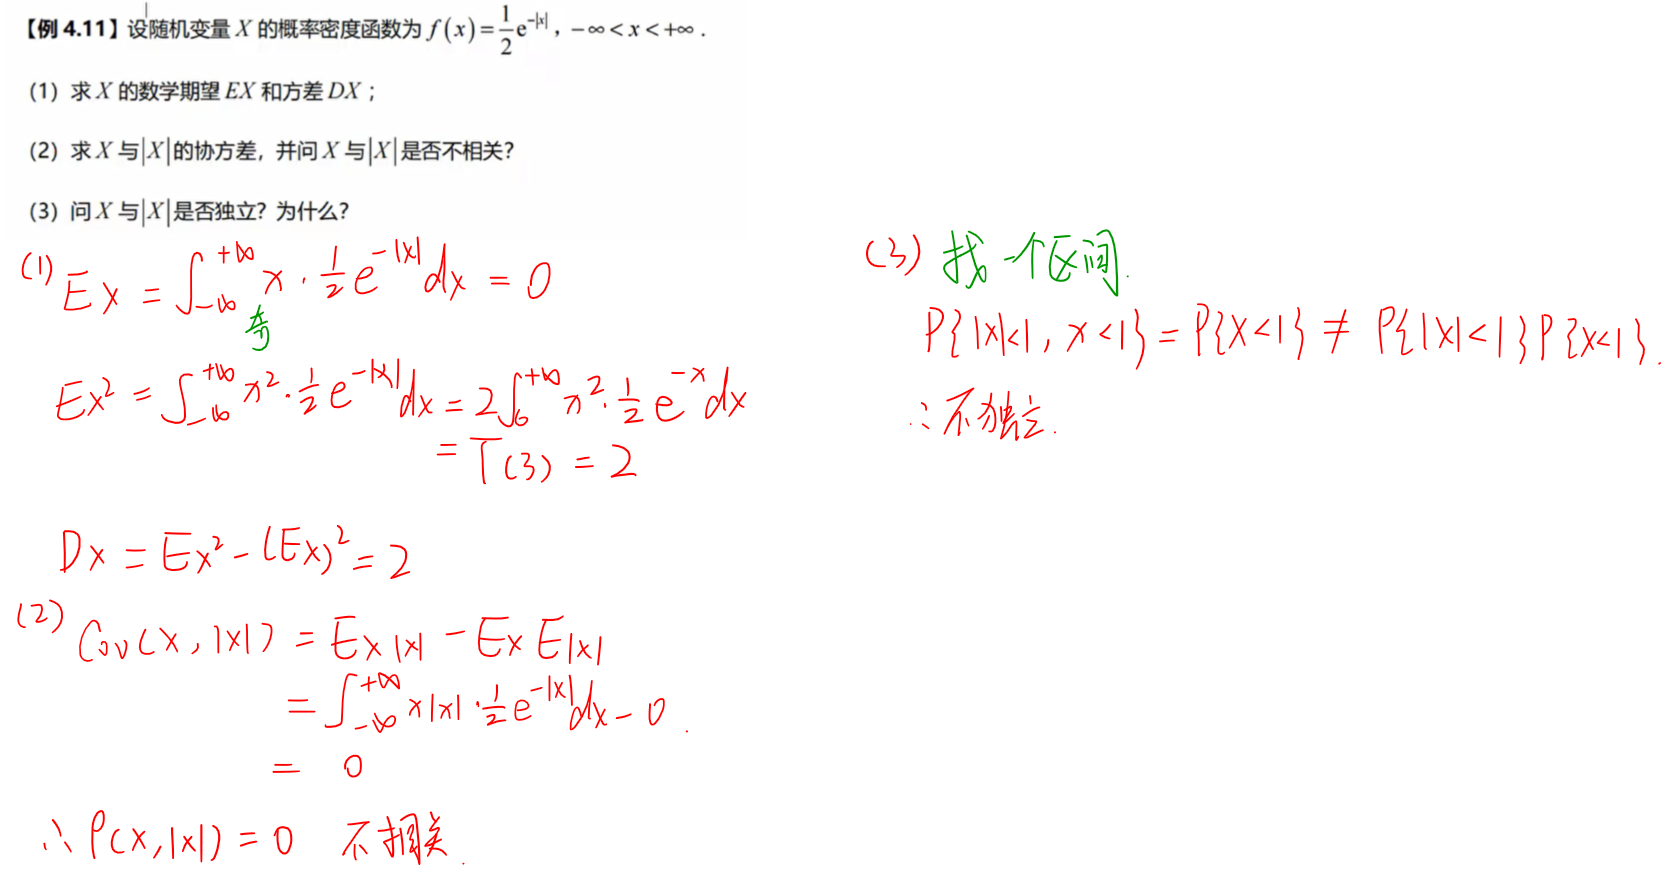 【例 4.11】设随机变量 X 的概率密度函数为 f(x)=1/2 e^{-|x|}, -∞<x<+∞.
(1) 求 X 的数学期望 EX 和方差 DX;
(2) 求 X 与|X|的协方差, 并问 X 与|X|是否不相关?
(3) 问 X 与|X|是否独立? 为什么?
(1) EX = ∫_{-∞}^{+∞} x · 1/2 e^{-|x|} dx = 0
奇
EX² = ∫_{-∞}^{+∞} x² · 1/2 e^{-|x|} dx = 2∫_0^{+∞} x² · 1/2 e^{-x} dx
= Γ(3) = 2
DX = EX² - (EX)² = 2
(2) Cov(X, |X|) = EX|X| - EX E|X|
= ∫_{-∞}^{+∞} x|x| · 1/2 e^{-|x|} dx - 0.
= 0
∴ ρ(X, |X|) = 0 不相关.
(3) 找一个区间.
P{|X|<1, X<1} = P{X<1} ≠ P{|X|<1}P{X<1}.
∴ 不独立.